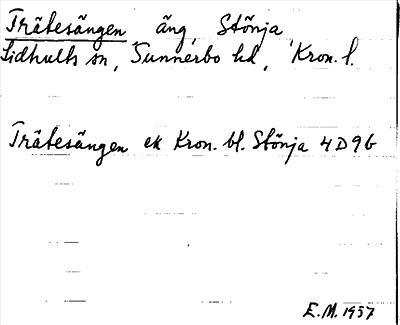 Trätesängen, äng, Stönja
Lidhults sn, Sunnerbo hd, Kron. l.
Trätesängen ek Kron. bl. Stönja 4D9b
E.M. 1957